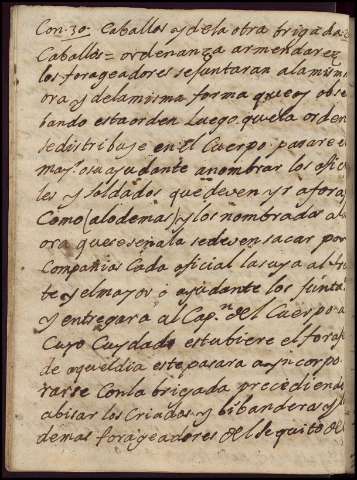 Con 30. Caballos y de la otra brigada
Caballos = ordenanza armendarez
los forageadores se juntaran a la mism
ora y de la misma forma que oy obse
bando esta orden luego que la orden
se distribuje en el Cuerpo pasare e
mayr. o su ayudante a nombrar los ofici
les y soldados que deven yr a foraj
Como (alodemas) y los nombrados a l
ora que se señala se deven sacar por
Compañias Cada oficial la suya al fr
te y el mayor o ayudante los junta
y entregara al Capn. del Cuerpo a
Cuyo Cuydado estubiere el foraj
de aquel dia este pasara a yncorpo
rarse Con la brigada precediend
abisar los Criados y bibanderas y
demas forageadores del sequito de